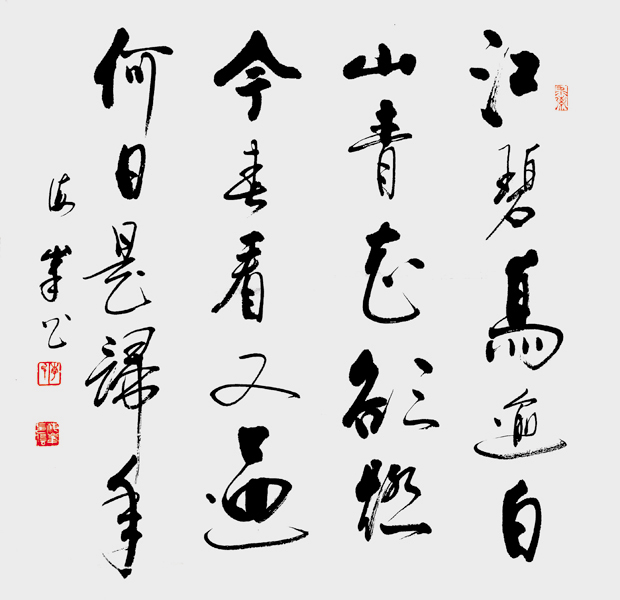 江碧鳥逾白
山青花欲燃
今春看又過
何日是歸年
海峯书